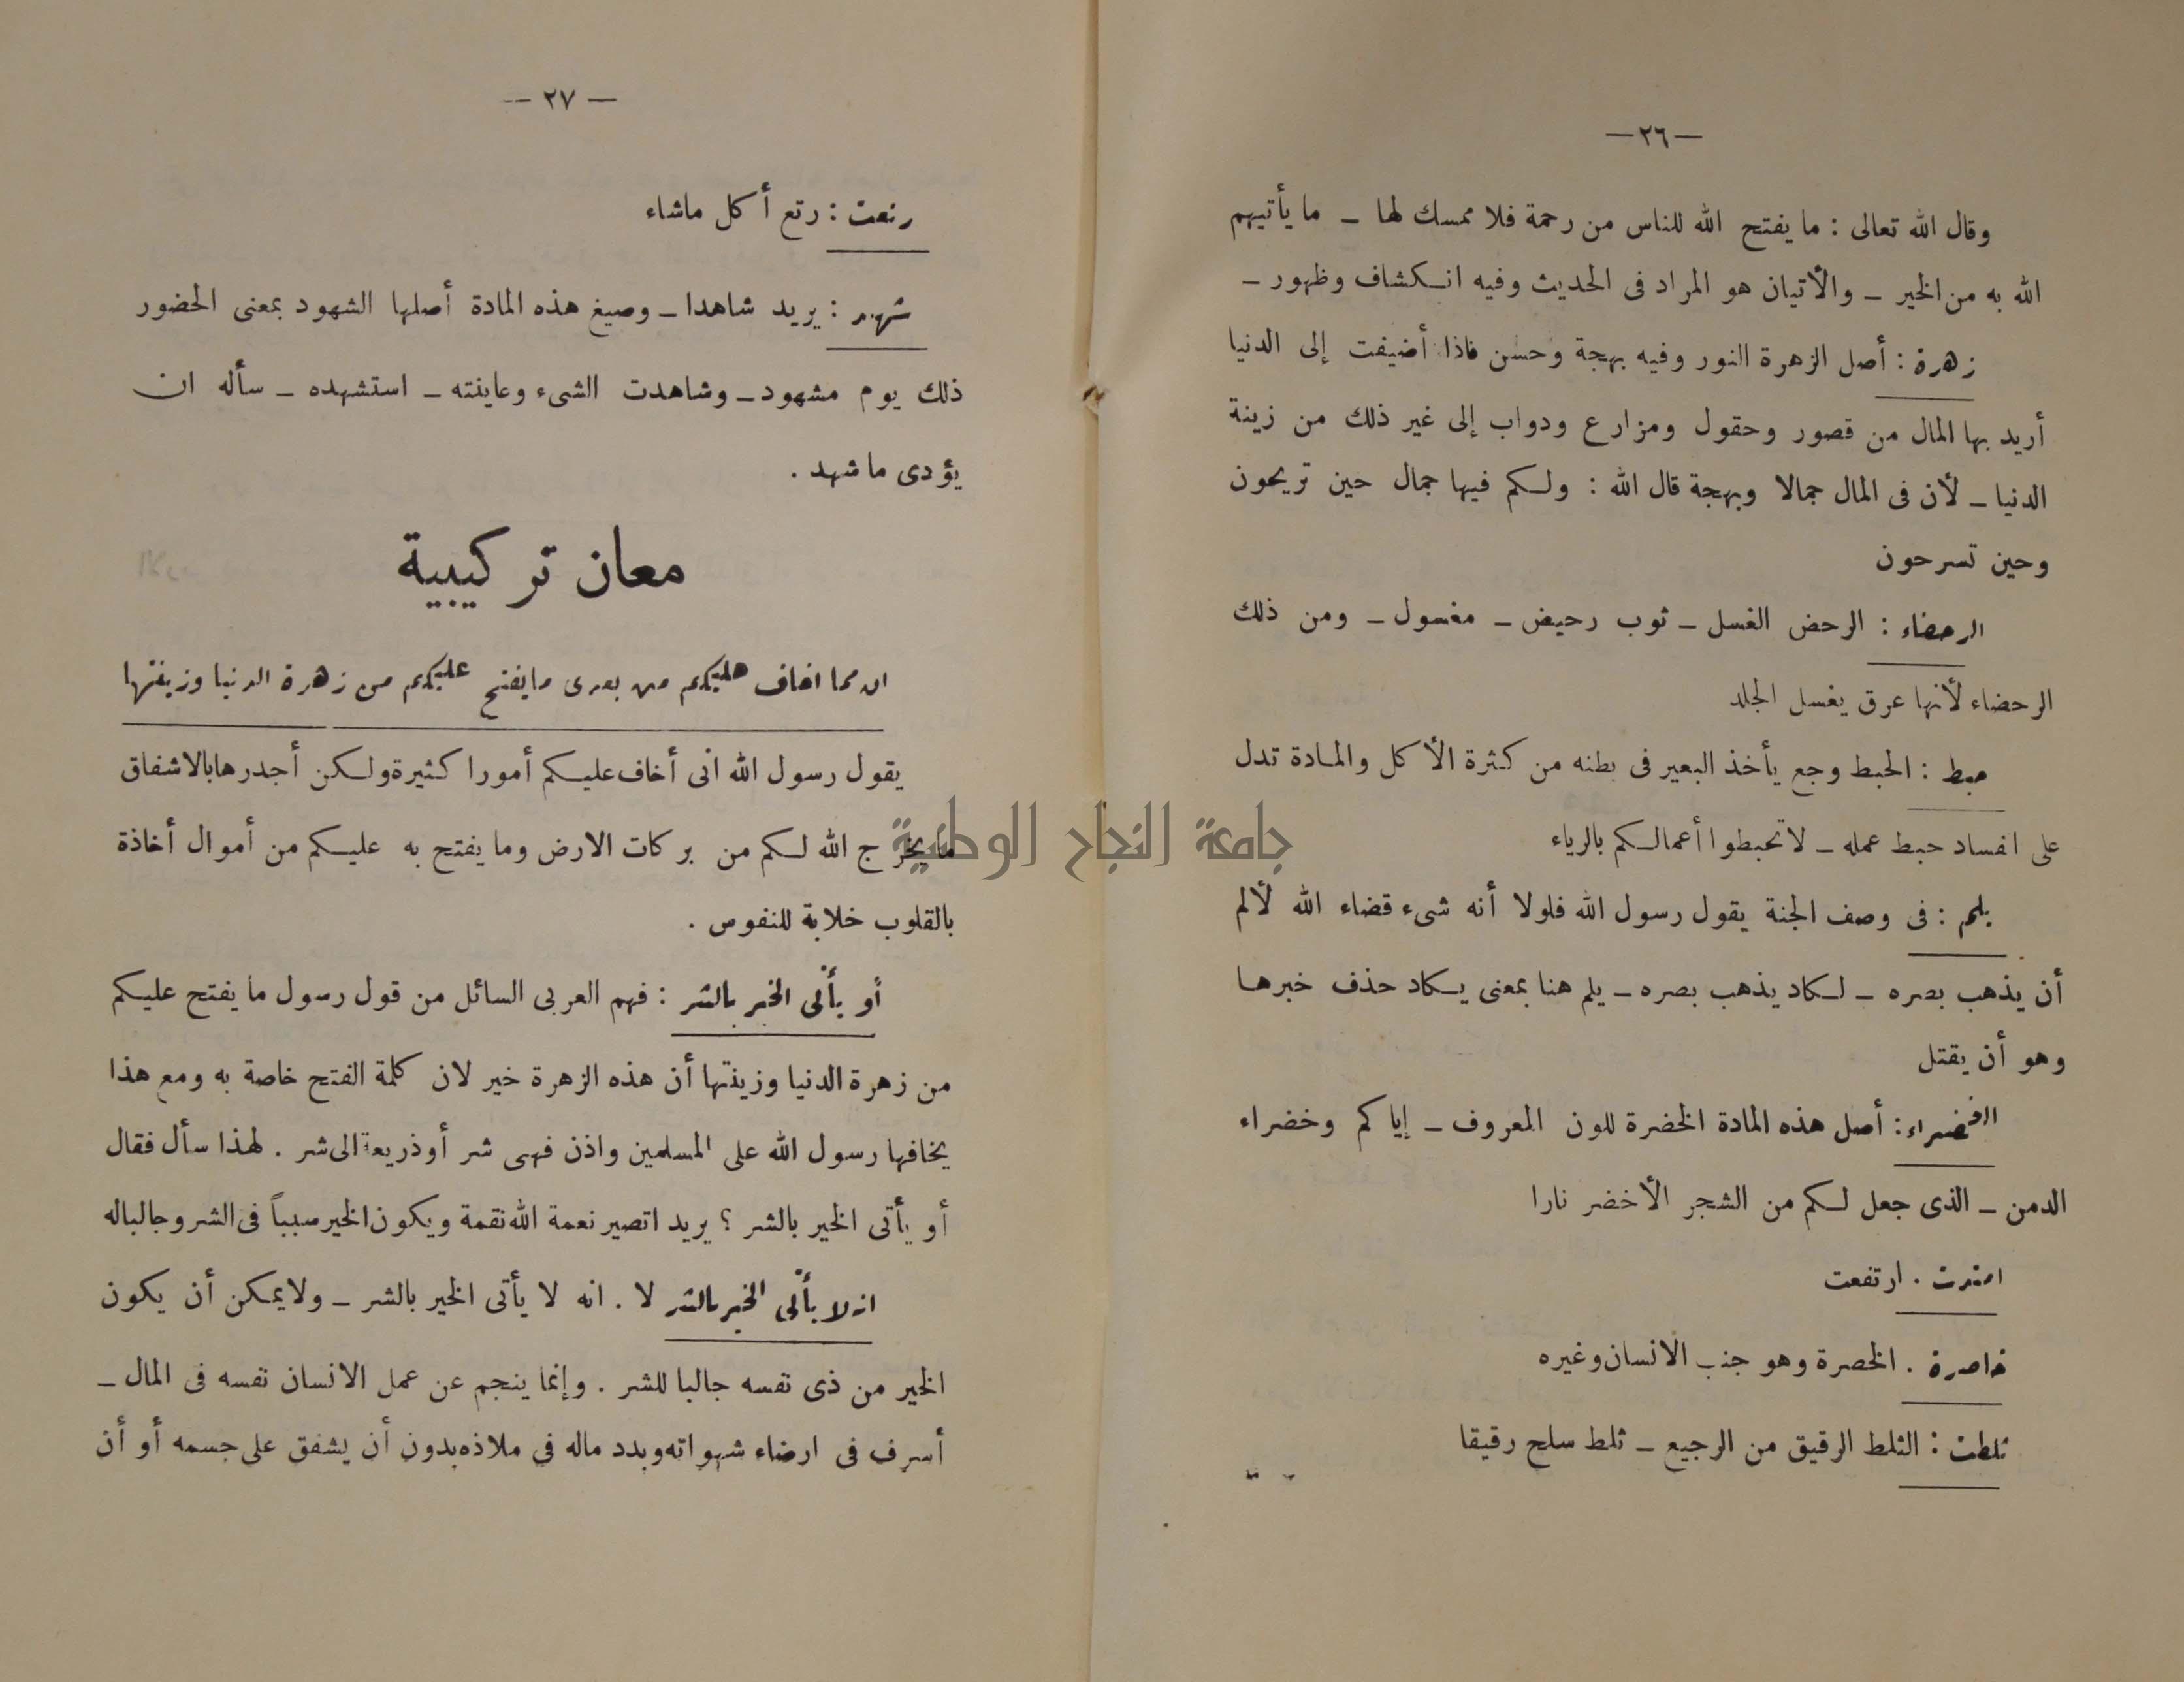 — ٢٦ —
وقال الله تعالى : ما يفتح الله للناس من رحمة فلا ممسك لها – ما يأتيهم
الله به من الخير – والأتيان هو المراد فى الحديث وفيه انكشاف وظهور –
زهرة : أصل الزهرة النور وفيه بهجة وحسن فاذا أضيفت إلى الدنيا
أريد بها المال من قصور وحقول ومزارع ودواب إلى غير ذلك من زينة
الدنيا – لأن فى المال جمالا وبهجة قال الله : ولكم فيها جمال حين تريحون
وحين تسرحون
الرحضاء : الرحض الغسل – ثوب رحيض – مغسول – ومن ذلك
الرحضاء لأنها عرق يغسل الجلد
حبط : الحبط وجع يأخذ البعير فى بطنه من كثرة الأكل والمادة تدل
على افساد حبط عمله – لا تحبطوا أعمالكم بالرياء
يلم : فى وصف الجنة يقول رسول الله فلولا أنه شىء قضاء الله لألم
أن يذهب بصره – لكاد يذهب بصره – يلم هنا بمعنى يكاد حذف خبرها
وهو أن يقتل
الخضراء : أصل هذه المادة الخضرة للون المعروف – إياكم وخضراء
الدمن – الذى جعل لكم من الشجر الأخضر نارا
امتدت . ارتفعت
خاصرة . الخصرة وهو جنب الانسان وغيره
ثلطت : الثلط الرقيق من الرجيع – ثلط سلح رقيقا
— ٢٧ —
رتعت : رتع أكل ماشاء
شهد : يريد شاهدا – وصيغ هذه المادة أصلها الشهود بمعنى الحضور
ذلك يوم مشهود – وشاهدت الشىء وعاينته – استشهده – سأله ان
يؤدى ما شهد .
معان تركيبية
ان مما اخاف عليكم من بعدى ما يفتح عليكم من زهرة الدنيا وزينتها
يقول رسول الله انى أخاف عليكم أمورا كثيرة ولكن أجدرها بالاشفاق
ما يخرج الله لكم من بركات الارض وما يفتح به عليكم من أموال أخاذة
بالقلوب خلابة للنفوس .
أو يأتى الخير بالشر : فهم العربى السائل من قول رسول ما يفتح عليكم
من زهرة الدنيا وزينتها أن هذه الزهرة خير لان كلمة الفتح خاصة به ومع هذا
يخافها رسول الله على المسلمين واذن فهى شر أو ذريعة الى شر . لهذا سأل فقال
أو يأتى الخير بالشر ؟ يريد اتصير نعمة الله نقمة ويكون الخير سبباً فى الشر وجالباله
انه لا يأتى الخير بالشر لا . انه لا يأتى الخير بالشر – ولا يمكن أن يكون
الخير من ذى نفسه جالبا للشر . وإنما ينجم عن عمل الانسان نفسه فى المال –
أسرف فى ارضاء شهواته وبدد ماله فى ملاذه بدون أن يشفق على جسمه أو أن
جامعة النجاح الوطنية